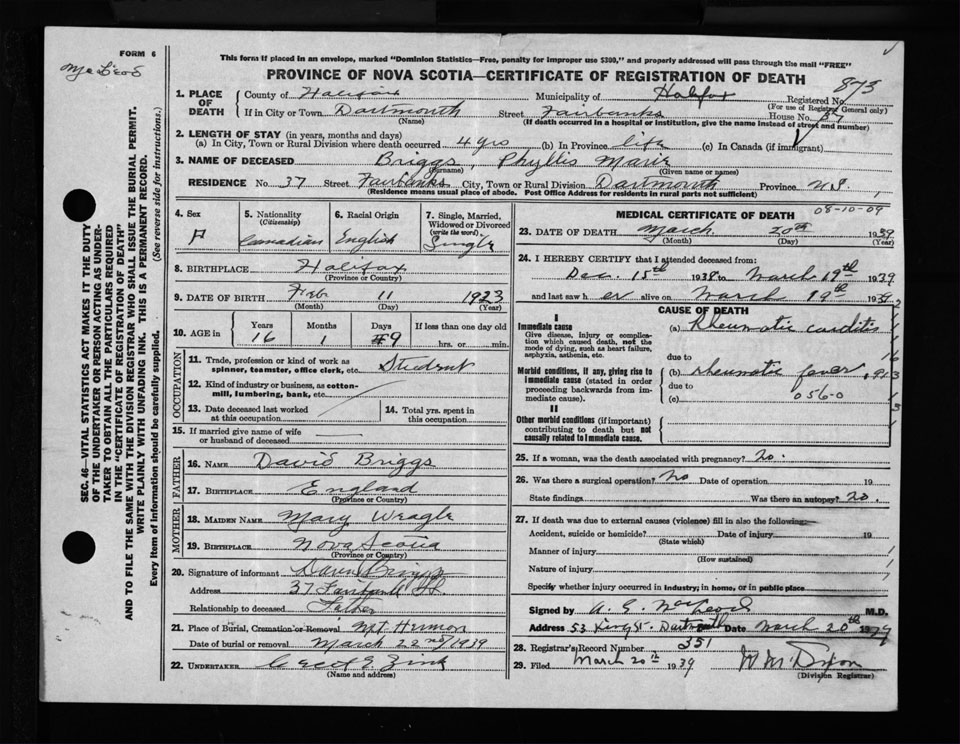 FORM 6
McLeod
This form if placed in an envelope, marked "Dominion Statistics—Free, penalty for improper use $300," and properly addressed will pass through the mail "FREE"
PROVINCE OF NOVA SCOTIA—CERTIFICATE OF REGISTRATION OF DEATH
873
1. PLACE OF DEATH
County of Halifax Municipality of Halifax Registered No.
(For use of Registrar General only)
If in City or Town Dartmouth Street Fairbanks House No. 37
(Name) (If death occurred in a hospital or institution, give the name instead of street and number)
2. LENGTH OF STAY (in years, months and days)
(a) In City, Town or Rural Division where death occurred 4 yrs (b) In Province life (c) In Canada (if immigrant)
3. NAME OF DECEASED Briggs, Phyllis Marie
(Surname) (Given name or names)
RESIDENCE No. 37 Street Fairbanks City, Town or Rural Division Dartmouth Province N.S.
(Residence means usual place of abode. Post Office Address for residents in rural parts not sufficient)
4. Sex F
5. Nationality (Citizenship) Canadian
6. Racial Origin English
7. Single, Married, Widowed or Divorced (write the word) Single
8. BIRTHPLACE Halifax
(Province or Country)
9. DATE OF BIRTH Feb 11 1923
(Month) (Day) (Year)
10. AGE in Years Months Days If less than one day old
16 1 9 hrs. or min.
OCCUPATION
11. Trade, profession or kind of work as spinner, teamster, office clerk, etc. Student
12. Kind of industry or business, as cotton-mill, lumbering, bank, etc.
13. Date deceased last worked at this occupation
14. Total yrs. spent in this occupation
15. If married give name of wife or husband of deceased
FATHER
16. NAME David Briggs
17. BIRTHPLACE England
(Province or Country)
MOTHER
18. MAIDEN NAME Mary Weagle
19. BIRTHPLACE Nova Scotia
(Province or Country)
20. Signature of informant David Briggs
Address 37
Relationship to deceased Father
21. Place of Burial, Cremation or Removal Mt Hermon
Date of burial or removal March 22nd/1939
22. UNDERTAKER Cecil E Zink
(Name and address)
MEDICAL CERTIFICATE OF DEATH
08-10-09
23. DATE OF DEATH March 20th 1939
(Month) (Day) (Year)
24. I HEREBY CERTIFY that I attended deceased from:
Dec. 15th 1938 to March 19th 1939
and last saw h er alive on March 19th 1939
CAUSE OF DEATH
I
Immediate cause
Give disease, injury or complication which caused death, not the mode of dying, such as heart failure, asphyxia, asthenia, etc.
(a) Rheumatic carditis
due to
Morbid conditions, if any, giving rise to immediate cause (stated in order proceeding backwards from immediate cause).
(b) rheumatic fever
due to
056-0
(c)
II
Other morbid conditions (if important) contributing to death but not causally related to immediate cause.
25. If a woman, was the death associated with pregnancy? no.
26. Was there a surgical operation? No Date of operation 19
State findings Was there an autopsy? no.
27. If death was due to external causes (violence) fill in also the following:
Accident, suicide or homicide? Date of injury 19
(State which)
Manner of injury
(How sustained)
Nature of injury
Specify whether injury occurred in industry; in home, or in public place
Signed by A. G. MacLeod M.D.
Address 53 King St. Dartmouth Date March 20th 1939
28. Registrar's Record Number 351
29. Filed March 20th 1939 W M Dixon
(Division Registrar)
SEC. 46—VITAL STATISTICS ACT MAKES IT THE DUTY
OF THE UNDERTAKER OR PERSON ACTING AS UNDER-
TAKER TO OBTAIN ALL THE PARTICULARS REQUIRED
IN THE "CERTIFICATE OF REGISTRATION OF DEATH"
AND TO FILE THE SAME WITH THE DIVISION REGISTRAR WHO SHALL ISSUE THE BURIAL PERMIT.
WRITE PLAINLY WITH UNFADING INK. THIS IS A PERMANENT RECORD.
Every item of information should be carefully supplied. (See reverse side for instructions.)